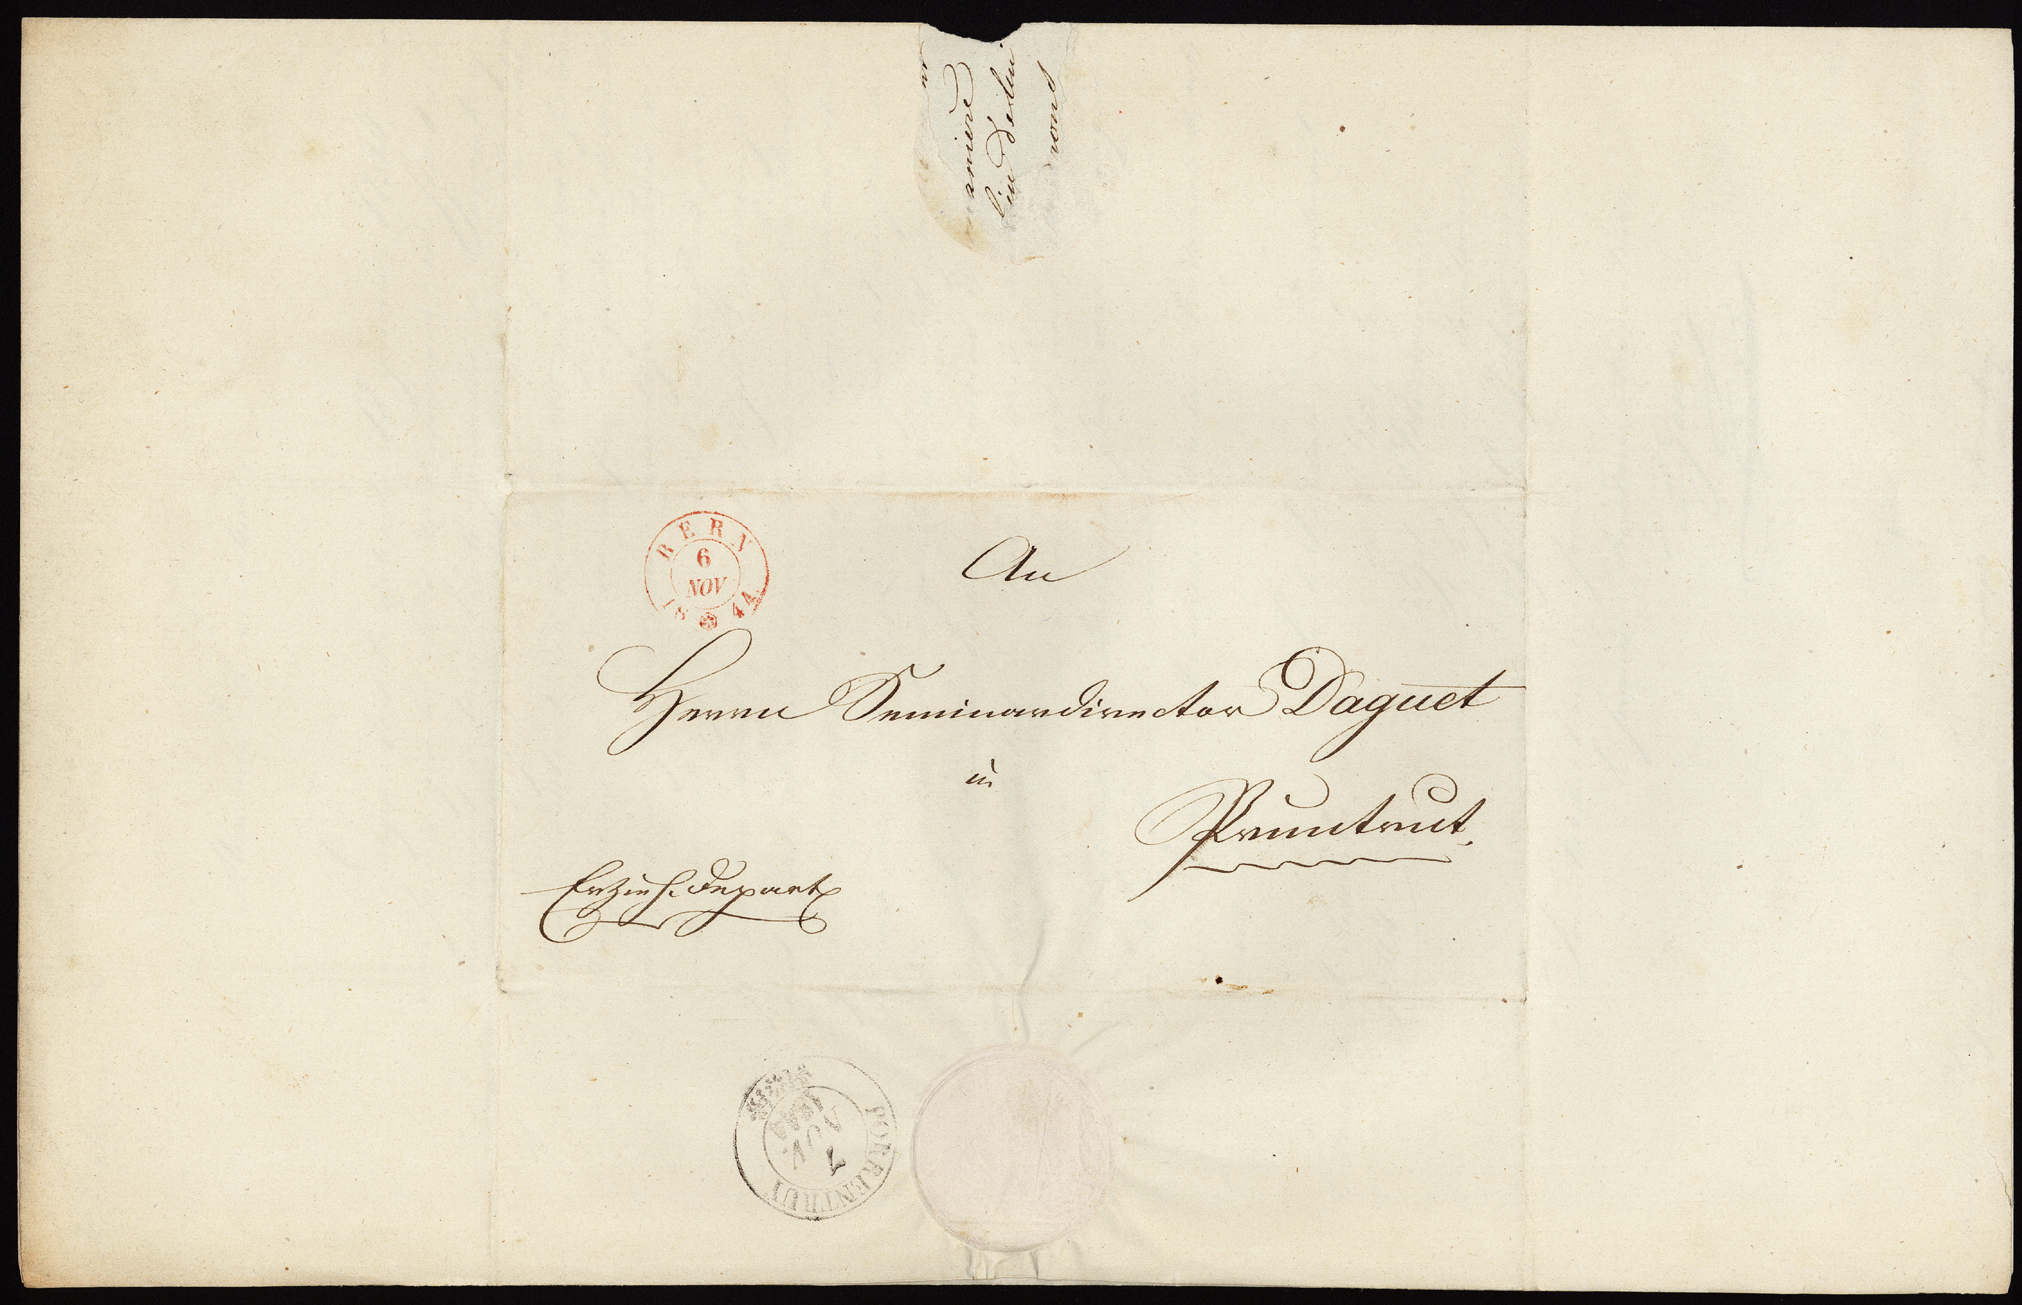 BERN
6
NOV
1844
An
Herrn Seminardirector Daguet
in
Pruntrut.
Erzieh. Depart
PORRENTRUY
7
NOV.
1844